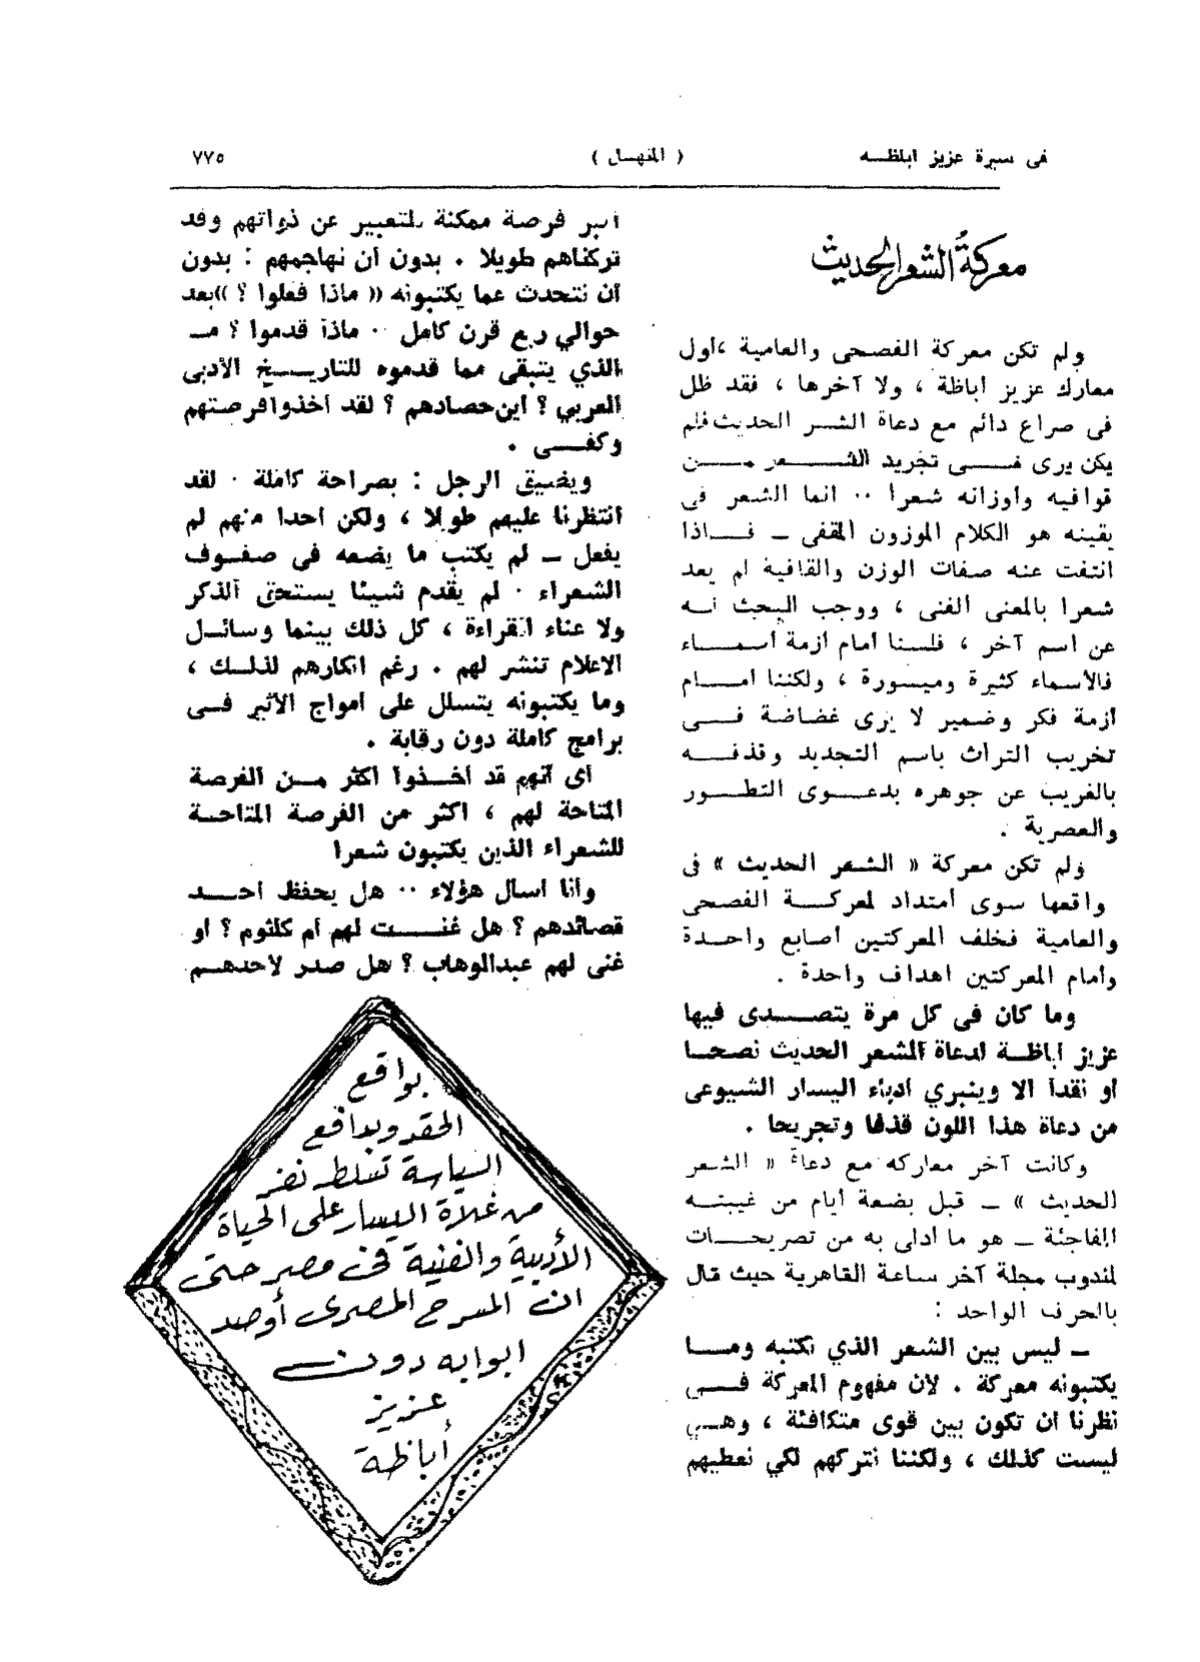 فى سيرة عزيز اباظـــه
( المنهـل )
٧٧٥
معركةُ الشعر الحديث
ولم تكن معركة الفصحى والعامية ،أول
معارك عزيز أباظة ، ولا آخرها ، فقد ظل
فى صراع دائم مع دعاة الشـــر الحديث فلم
يكن يرى فـــــى تجريد الشـــــعر مـــــن
قوافيه وأوزانه شعرا ٠٠ انما الشعر فى
يقينه هو الكلام الموزون المقفى ـ فـــاذا
انتفت عنه صفات الوزن والقافية لم يعد
شعرا بالمعنى الفنى ، ووجب البحث لـــه
عن اسم آخر ، فلسنا أمام أزمة أسمـــاء
فالأسماء كثيرة وميسورة ، ولكننا أمـــام
أزمة فكر وضمير لا يرى غضاضة فـــى
تخريب التراث باسم التجديد وقذفـــه
بالغريب عن جوهره بدعـــوى التطـــور
والعصرية .
ولم تكن معركة « الشعر الحديث » فى
واقعها سوى امتداد لمعركـــة الفصحى
والعامية فخلف المعركتين أصابع واحـدة
وأمام المعركتين أهداف واحدة .
وما كان فى كل مرة يتصـــدى فيها
عزيز أباظـــة لدعاة الشعر الحديث نصحـــا
أو نقدا الا وينبري أدباء اليسار الشيوعى
من دعاة هذا اللون قذفا وتجريحا .
وكانت آخر معاركه مع دعاة « الشعر
الحديث » ـ قبل بضعة أيام من غيبتـــه
المفاجئة ـ هو ما أدلى به من تصريحـــات
لمندوب مجلة آخر ساعة القاهرية حيث قال
بالحرف الواحد :
ـ ليس بين الشعر الذي نكتبه ومـــا
يكتبونه معركة . لأن مفهوم المعركة فـــي
نظرنا أن تكون بين قوى متكافئة ، وهـــي
ليست كذلك ، ولكننا نتركهم لكي نعطيهم
أكبر فرصة ممكنة للتعبير عن ذواتهم وقد
تركناهم طويلا . بدون أن نهاجمهم : بدون
أن نتحدث عما يكتبونه « ماذا فعلوا ؟ »بعد
حوالي ربع قرن كامل ٠٠ ماذا قدموا ؟ مـــ
الذي يتبقى مما قدموه للتاريـــخ الأدبى
العربي ؟ أين حصادهم ؟ لقد أخذوا فرصتهم
وكفـــى .
ويضيق الرجل : بصراحة كاملة ٠ لقد
انتظرنا عليهم طويلا ، ولكن أحدا منهم لم
يفعل ـ لم يكتب ما يضعه فى صفـوف
الشعراء ٠ لم يقدم شيئا يستحق الذكر
ولا عناء القراءة ، كل ذلك بينما وسائـل
الاعلام تنشر لهم . رغم انكارهم لذلـــك ،
وما يكتبونه يتسلل على أمواج الأثير فـــى
برامج كاملة دون رقابة .
أى أنهم قد أخـــذوا أكثر مـــن الفرصة
المتاحة لهم ، أكثر من الفرصة المتاحـــة
للشعراء الذين يكتبون شعرا
وأنا أسأل هؤلاء ٠٠ هل يحفظ أحـــد
قصائدهم ؟ هل غنـــــت لهم أم كلثوم ؟ أو
غنى لهم عبدالوهاب ؟ هل صدر لأحدهـــم
بواقع
الحقد وبدافع
السياسة تسلط نفر
من غلاة اليسار على الحياة
الأدبية والفنية فى مصر حتى
ان المسرح المصرى أوصد
ابوابه دون
عزيز
أباظة